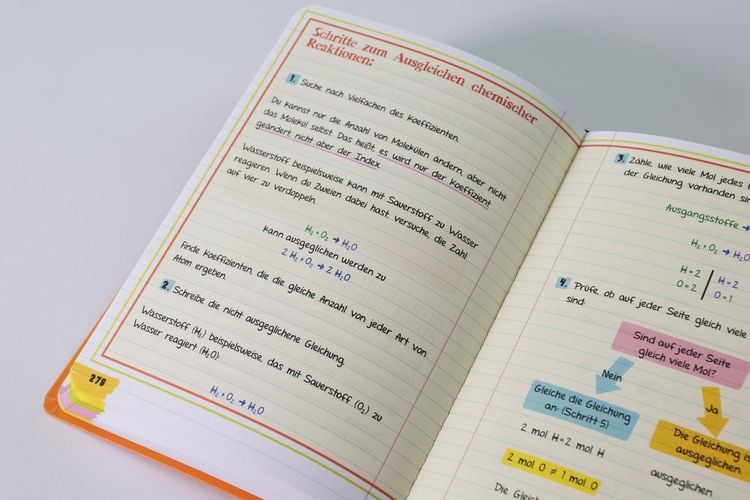 Schritte zum Ausgleichen chemischer
Reaktionen:
1. Suche nach Vielfachen des Koeffizienten.
Du kannst nur die Anzahl von Molekülen ändern, aber nicht
das Molekül selbst. Das heißt, es wird nur der Koeffizient
geändert, nicht aber der Index.
Wasserstoff beispielsweise kann mit Sauerstoff zu Wasser
reagieren. Wenn du Zweien dabei hast, versuche, die Zahl
auf vier zu verdoppeln.
H₂ + O₂ → H₂O
kann ausgeglichen werden zu
2 H₂ + O₂ → 2 H₂O
Finde Koeffizienten, die die gleiche Anzahl von jeder Art von
Atom ergeben.
2. Schreibe die nicht ausgeglichene Gleichung.
Wasserstoff (H₂) beispielsweise, das mit Sauerstoff (O₂) zu
Wasser reagiert (H₂O):
H₂ + O₂ → H₂O
276
3. Zähle, wie viele Mol jedes
der Gleichung vorhanden
Ausgangsstoffe →
H₂ + O₂ → H₂O
H = 2 | H = 2
O = 2 | O = 1
4. Prüfe, ob auf jeder Seite gleich viele
sind:
Sind auf jeder Seite
gleich viele Mol?
Nein
Ja
Gleiche die Gleichung
an: (Schritt 5)
Die Gleichung ist
ausgeglichen.
2 mol H = 2 mol H
2 mol O ≠ 1 mol O
ausgeglichen
Die